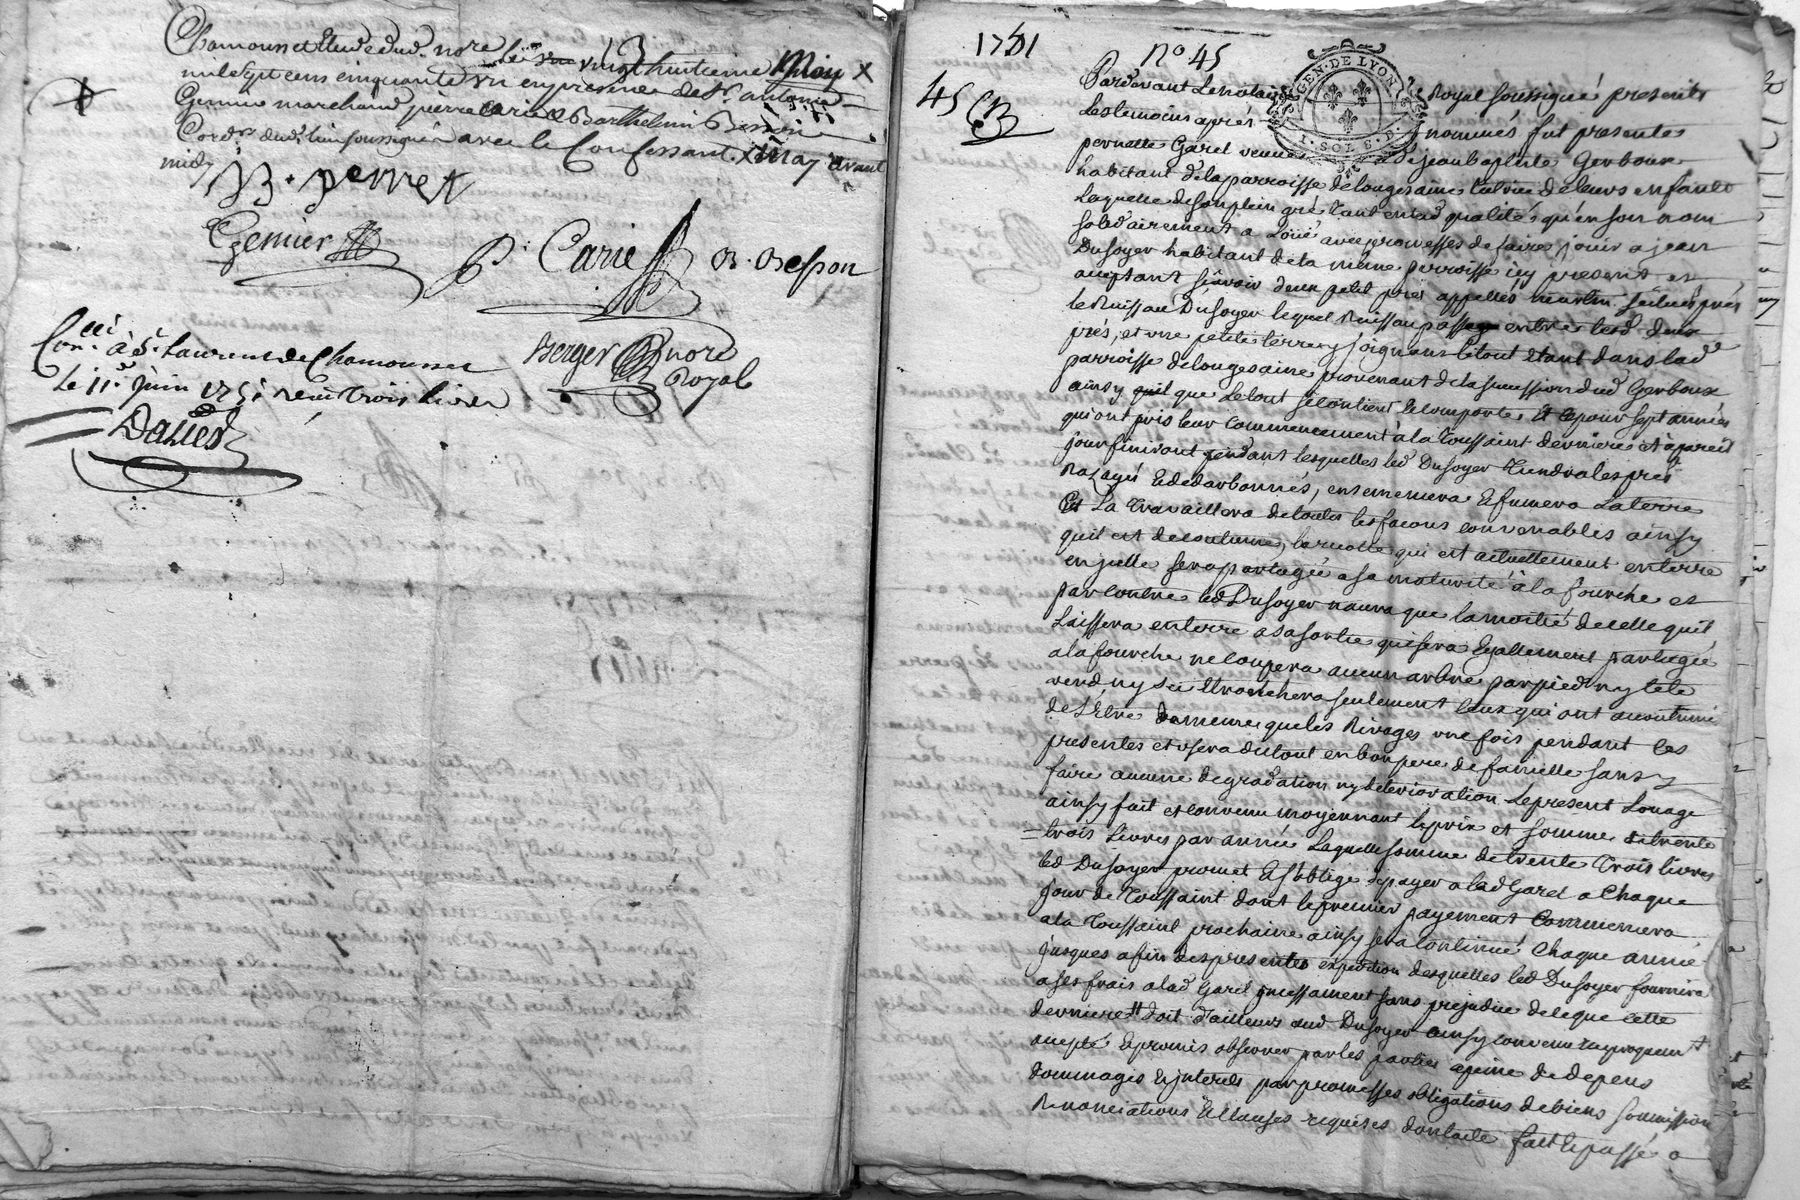 Chamousset Etude dud. nore le vingt huitieme May x
mil sept cens cinquante un en presence de Sr. antoine
Gemier marchand pierre Carie & Barthelemi Besson
Cord.er dud. lieu soussignés avec le Confessant. x may avant
midy
B. perret
Gemier
P. Carie B. Besson
Berger nore Royal
Con.llé à St. Laurent de Chamousset
le 11e. juin 1751 reçu trois livres
Dalier
1751
No 45
45
GEN. DE LYON
1. SOL 8. D.
Pardevant Le notaire Royal soussigné presents
Les temoins aprés nommés fut presente
pernette Garel veuve de jean baptiste Gerboux
habitant de la parroisse de longesaine tutrice de leurs enfants
Laquelle de son plein gré tant en lad qualité qu'en son nom
solidairement a Loüé avec promesses de faire jouir a jean
Dusoyer habitant de la même parroisse icy present et
aceptant sçavoir deux petit prés appellés martin situés près
le Ruisseau Dusoyer lequel Ruisseau passe entre lesd. deux
prés, et une petite terre y joignant le tout étant dans lad.
parroisse de longesaine provenant de la succession dud Gerboux
ainsy que le tout se contient & comporte & ce pour sept années
qui ont pris leur commencement à la Toussaint derniere et à pareil
jour finiront pendant lesquelles led Dusoyer tiendra les prés
Razayés & dedarbonnés, ensemencera & fumera La terre
Et La Travaillera de toutes les façons convenables ainsy
quil est de coutume, la recolte qui est actuellement en terre
en jcelle sera partagée a sa maturité à la fourche et
par contre led Dusoyer n'aura que la moitié de celle quil
Laissera en terre a sa sortie qui sera Egallement partagée
a la fourche ne coupera aucun arbre par pied ny tete
verd ny sec Ebranchera seulement ceux qui ont accoutumé
de L'Etre de meme que les Rivages une fois pendant les
presentes et usera du tout en bon pere de famille sans y
faire aucune degradation ny deterioration Le present Louage
ainsy fait et convenu moyennant le prix et somme de trente
trois Livres par année Laquelle somme de trente Trois livres
led Dusoyer promet & s'oblige de payer a lad Garel a Chaque
jour de Toussaint dont le premier payement Commencera
a la Toussaint prochaine ainsy sera continué Chaque année
jusques a fin des presentes expedition desquelles led Dusoyer fournira
a ses frais a lad Garel incessament sans prejudice de ce que cette
derniere doit d'ailleurs aud Dusoyer ainsy convenu reciproquem.t
accepté & promis observer par les parties a peine de depens
dommages & jnterets par promesses obligations de biens soumission
Renonciations & Clauses requises dont acte fait & passé a